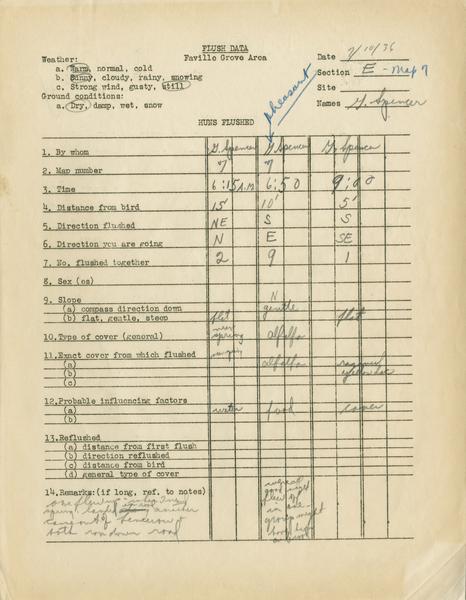 FLUSH DATA
Faville Grove Area
Weather:
a. Warm, normal, cold
b. Sunny, cloudy, rainy, snowing
c. Strong wind, gusty, still
Ground conditions:
a. Dry, damp, wet, snow
Date 7/10/36
Section E - Map 7
Site
Names G. Spencer
pheasant
HUNS FLUSHED
1. By whom G. Spencer G Spencer G. Spencer
2. Map number 7 7
3. Time 6:15 A.M. 6:50 9:00
4. Distance from bird 15' 10' 5'
5. Direction flushed NE S S
6. Direction you are going N E SE
7. No. flushed together 2 9 1
8. Sex (es)
9. Slope
(a) compass direction down N
(b) flat, gentle, steep flat gentle flat
10. Type of cover (general) near spring alfalfa
11. Exact cover from which flushed
(a) alfalfa
(b)
(c)
12. Probable influencing factors
(a) water food cover
(b)
13. Reflushed
(a) distance from first flush
(b) direction reflushed
(c) distance from bird
(d) general type of cover
14. Remarks: (if long, ref. to notes)
one flew
spring another
both ran down road
in one
group might